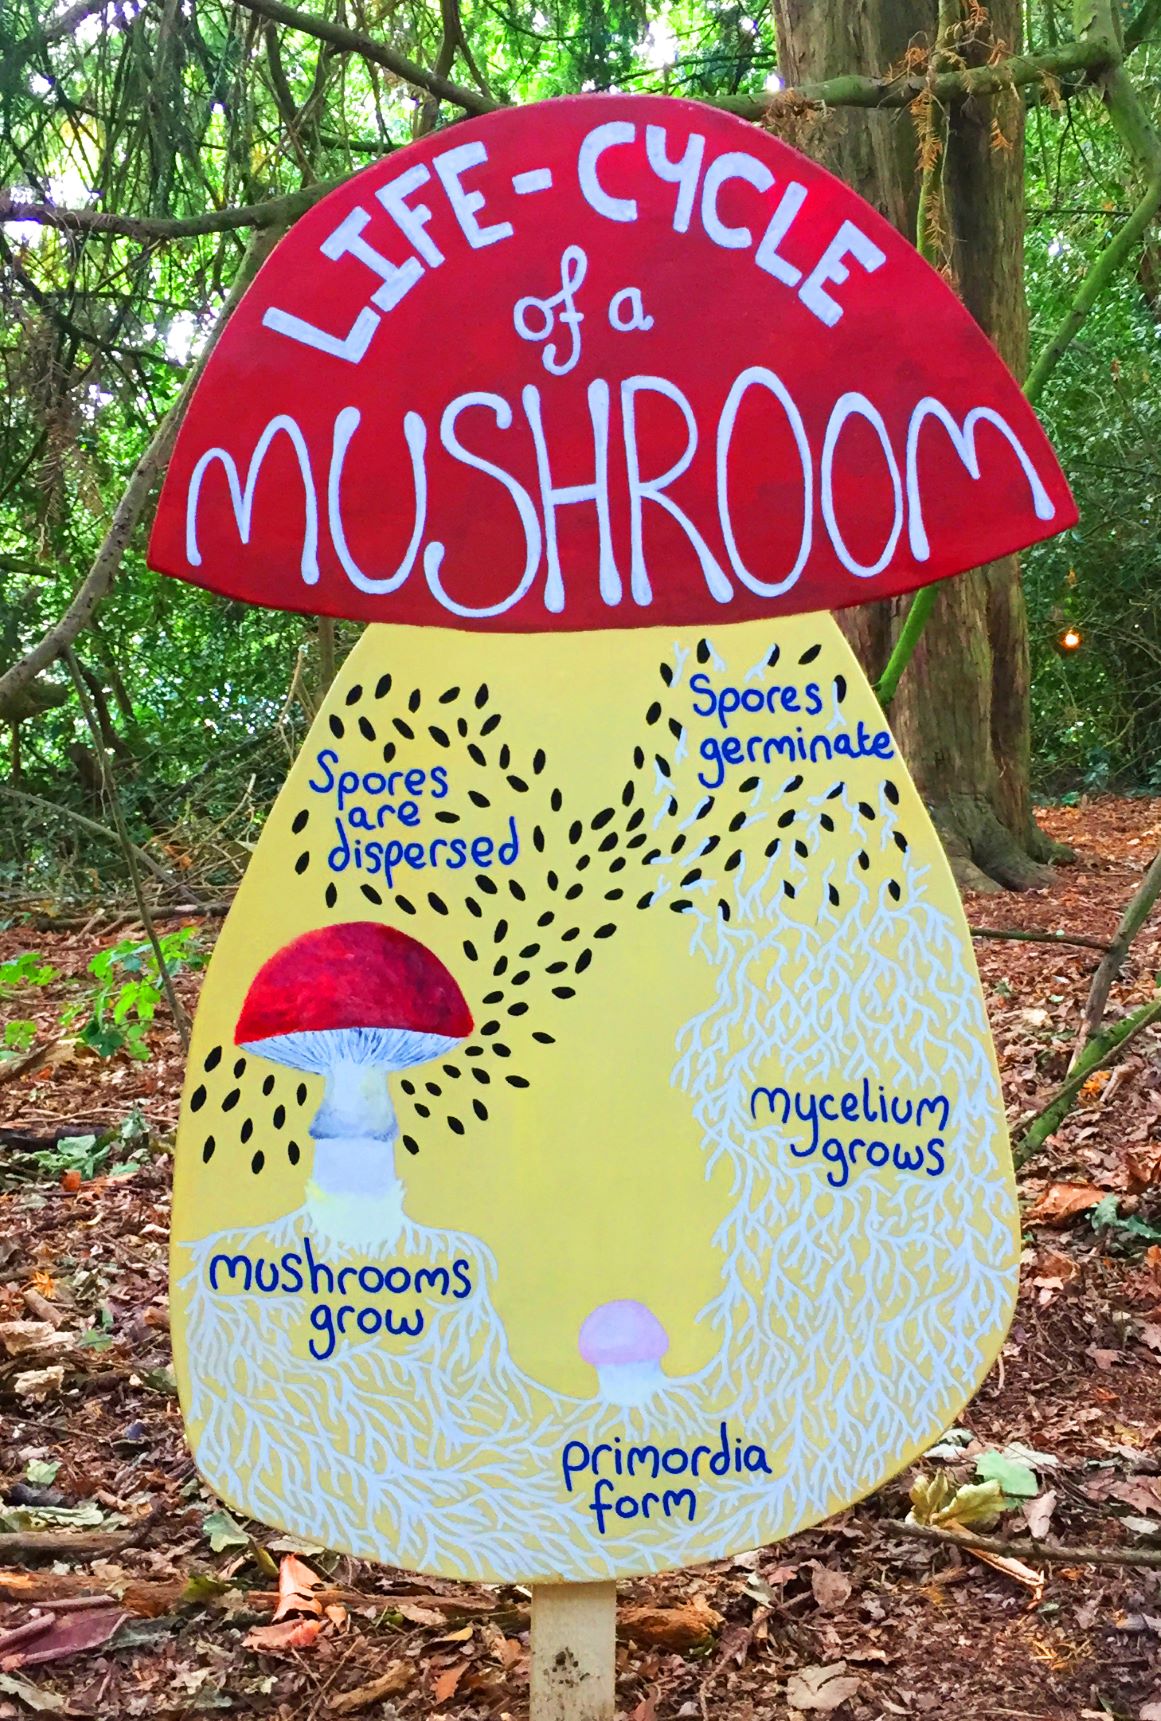 LIFE-CYCLE
of a
MUSHROOM
Spores
are
dispersed
Spores
germinate
mycelium
grows
primordia
form
mushrooms
grow